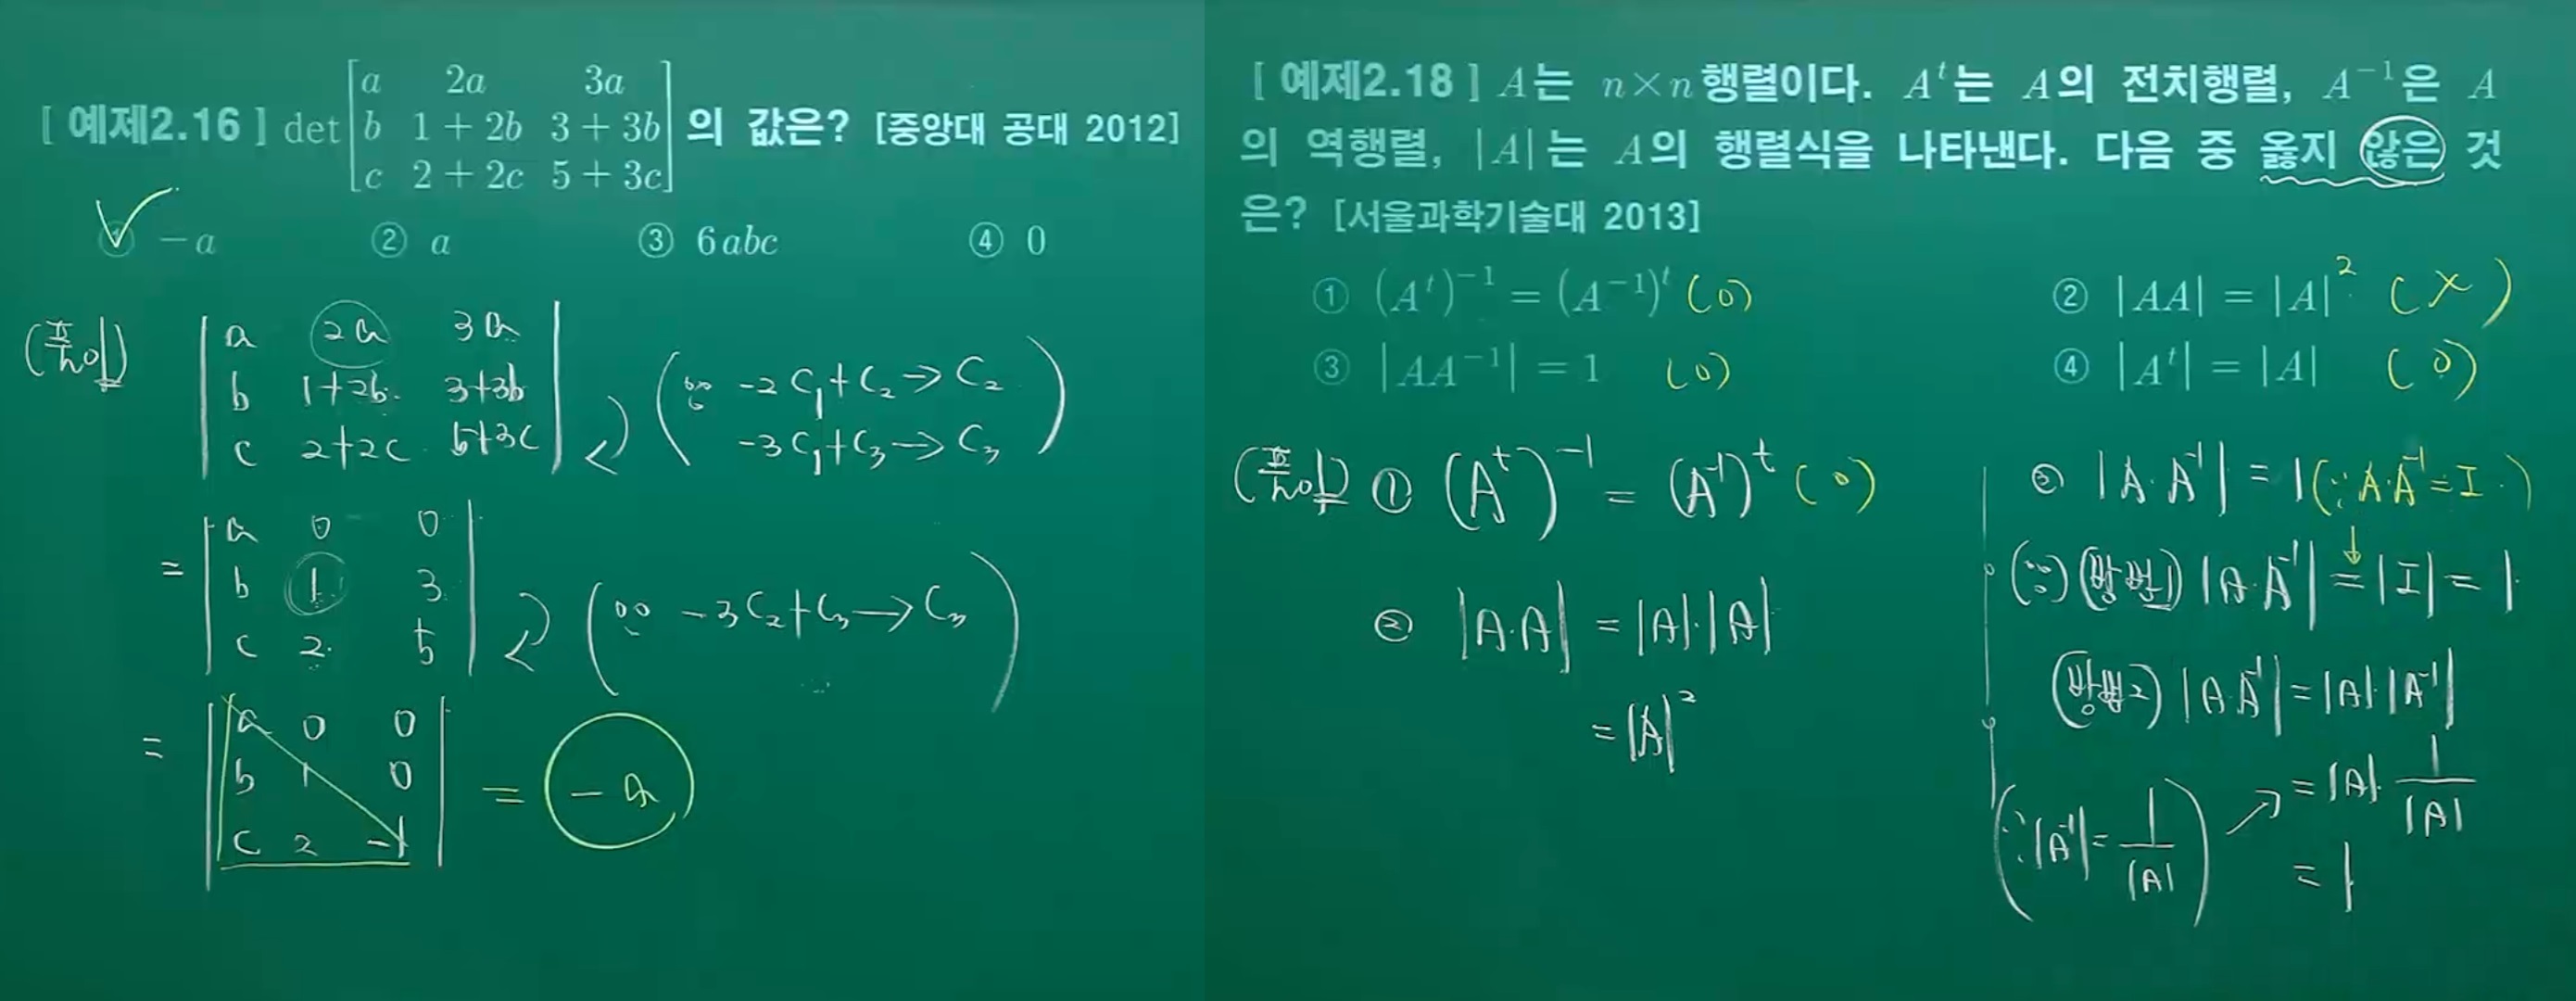 [ 예제2.16 ] det [ a 2a 3a
b 1 + 2b 3 + 3b
c 2 + 2c 5 + 3c ] 의 값은? [중앙대 공대 2012]
① −a ② a ③ 6abc ④ 0
(풀이) | a 2a 3a
b 1+2b 3+3b
c 2+2c 5+3c | (∵ -2C₁+C₂→C₂
-3C₁+C₃→C₃)
= | a 0 0
b 1 3
c 2 5 | (∵ -3C₂+C₃→C₃)
= | a 0 0
b 1 0
c 2 -1 | = -a
[ 예제2.18 ] A는 n×n 행렬이다. Aᵗ는 A의 전치행렬, A⁻¹은 A
의 역행렬, |A|는 A의 행렬식을 나타낸다. 다음 중 옳지 않은 것
은? [서울과학기술대 2013]
① (Aᵗ)⁻¹ = (A⁻¹)ᵗ (O) ② |AA| = |A|² (X)
③ |AA⁻¹| = 1 (O) ④ |Aᵗ| = |A| (O)
(풀이) ① (Aᵗ)⁻¹ = (A⁻¹)ᵗ (O)
② |A·A| = |A|·|A|
= |A|²
③ |A·A⁻¹| = 1 (∵ A·A⁻¹ = I)
(∵) (방법1) |A·A⁻¹| = |I| = 1
(방법2) |A·A⁻¹| = |A|·|A⁻¹|
= |A|·1/|A|
(∵ |A⁻¹| = 1/|A|)
= 1